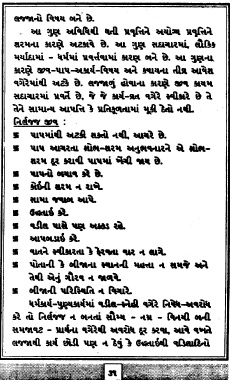 લજ્જાનો વિષય બને છે.
આ ગુણ અવિધિથી થતી પ્રવૃત્તિને અયોગ્ય પ્રવૃત્તિને
શરમના કારણે અટકાવે છે. આ ગુણ સદાચારમાં, લૌકિક
મર્યાદામાં - ધર્મમાં પ્રવર્તાવામાં કારણ બને છે. આ ગુણના
કારણે જીવ-પાપ-અકાર્ય-વિષય અને કષાયના તીવ્ર આવેશ
વગેરેમાંથી અટકે છે. લજ્જાળું હોવાના કારણે જીવ કાયમ
સદાચારમાં પ્રવર્તે છે. જે જે કાર્ય-વ્રત વગેરે સ્વીકારે છે તે
તેને સામાન્ય આપત્તિ કે પ્રતિકૂળતામાં મૂકી દેતો નથી.
નિર્લજ્જ જીવ :
પાપમાંથી અટકી શકતો નથી. આચરે છે.
પાપ આચરતા ક્ષોભ-શરમ અનુભવનારને એ ક્ષોભ-
શરમ દૂર કરાવી પાપમાં ખેંચી જાય છે.
પાપનો બચાવ કરે છે.
કોઈની શરમ ન રાખે.
સામા જવાબ આપે.
ઉદ્ધતાઈ કરે.
વડીલ પાસે પણ અક્કડ રહે.
આપબડાઈ કરે.
વાતને સ્વીકારતા કે ફેરવતા વાર ન લાગે.
પોતાની કે બીજાના સ્થાનની મહત્તા ન સમજે અને
તેથી એનું ગૌરવ ન જાળવે.
બીજાની પરિસ્થિતિ ન વિચારે.
ધર્મકાર્ય-પુણ્યકાર્યમાં વડીલ-સ્નેહી વગેરે નિષેધ-અવરોધ
કરે તો નિર્લજ્જ ન બનતાં સૌમ્ય - નમ્ર - વિનયી બની
સમજાવટ - પ્રાર્થના વગેરેથી અવરોધ દૂર કરવા, આવે વખતે
લજ્જાથી કાર્ય છોડી પણ ન દેવું કે ઉદ્ધતાઈથી વડીલાદિનો